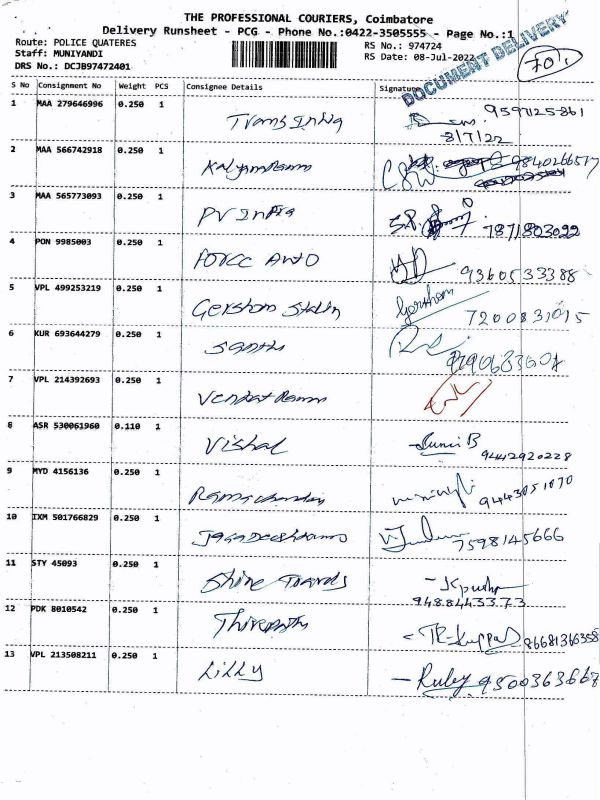 THE PROFESSIONAL COURIERS, Coimbatore
Delivery Runsheet - PCG - Phone No.:0422-3505555 - Page No.:1
Route: POLICE QUATERES
Staff: MUNIYANDI
DRS No.: DCJB97472401
RS No.: 974724
RS Date: 08-Jul-2022
DOCUMENT DELIVERY
S No Consignment No Weight PCS Consignee Details Signature
1 MAA 279646996 0.250 1 Trans India 9597125861
8/7/22
2 MAA 566742918 0.250 1 9840266517
3 MAA 565773093 0.250 1 PV India 7871803022
4 PON 9985003 0.250 1 Force Auto 9360533388
5 VPL 499253219 0.250 1 Gershom Stalin Gershom
7200831015
6 KUR 693644279 0.250 1
7 VPL 214392693 0.250 1 Venkat
8 ASR 530061960 0.110 1 Vishal B
9442920228
9 MYD 4156136 0.250 1 Ramachandran 9443051070
10 IXM 501766829 0.250 1 7598145666
11 STY 45093 0.250 1 Shine
9488443373
12 PDK 8010542 0.250 1 Thirupathi
13 VPL 213508211 0.250 1 Lilly Ruby 9500363667